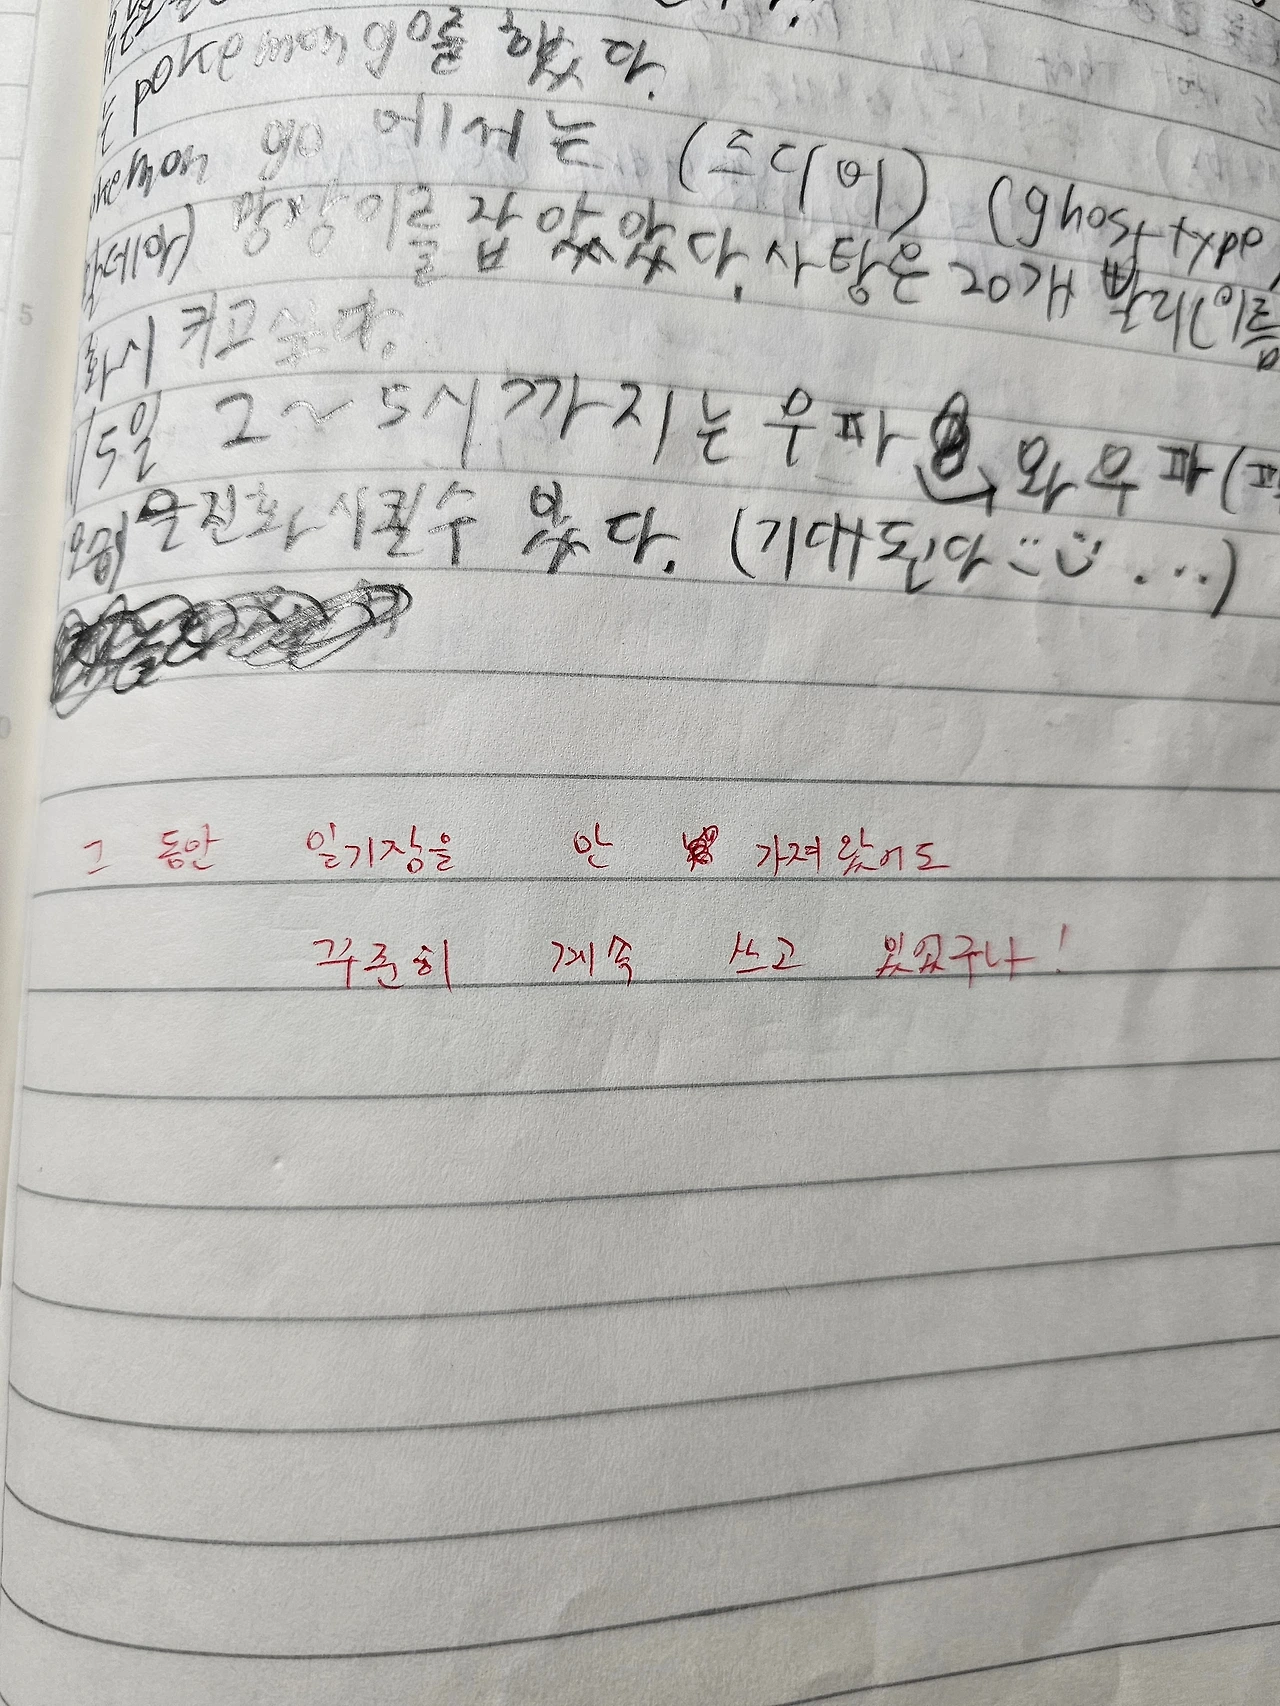 는 pokemon go을 했다.
okemon go 에서는 (드디어) (ghost type,
망장이를 잡았았다. 사탕은 20개 빨리(이름
화시키고 싶다.
5일 2~5시까지는 우파 와 우파(파
모습)을 진화시킬수 있다. (기대된다 ...)
그 동안 일기장을 안 가져왔어도
꾸준히 계속 쓰고 있었구나!